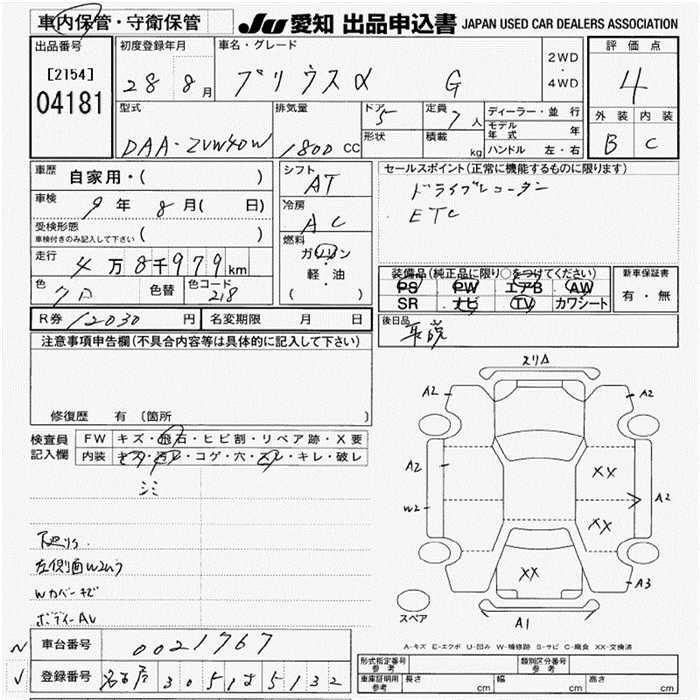 車内保管・守衛保管 JU 愛知 出品申込書 JAPAN USED CAR DEALERS ASSOCIATION
出品番号 初度登録年月 車名・グレード 2WD・4WD 評価点
[2154]
04181 28 8月 プリウスα G 4
外装 内装
B C
型式 排気量 ドア 定員 ディーラー・並行
DAA-ZVW40W 1800CC 5 7人 モデル年式 年
形状 積載 kg ハンドル 左・右
車歴 自家用・( ) シフト AT セールスポイント(正常に機能するものに限ります)
車検 9年 8月( 日) 冷房 AC ドライブレコーダー
ETC
受検形態
車検付きのみ記入して下さい ( ) 燃料 ガソリン・軽・油 ( )
走行 4万8千979km
装備品(純正品に限り○をつけてください) 新車保証書
PS PW エアB AW 有・無
SR ナビ TV カワシート
色 色替 色コード 218
R券 12030円 名変期限 月 日 後日品
注意事項申告欄(不具合内容等は具体的に記入して下さい)
修復歴 有(箇所
検査員記入欄 FW キズ・飛石・ヒビ割・リペア跡・X要
内装 キズ・汚レ・コゲ・穴・スレ・キレ・破レ
シミ
下廻りS
Wカバーキズ
ボディーAU
スリA
A2 A2
A2 XX A2
W2 XX
XX A3
A1
スペア
A-キズ E-エクボ U-凹み W-補修跡 S-サビ C-腐食 XX-交換済
車台番号 0021767
登録番号 名古屋 305 5132
形式指定番号 参考 類別区分番号 参考
車庫証明用 参考 長さ cm 幅 cm 高さ cm